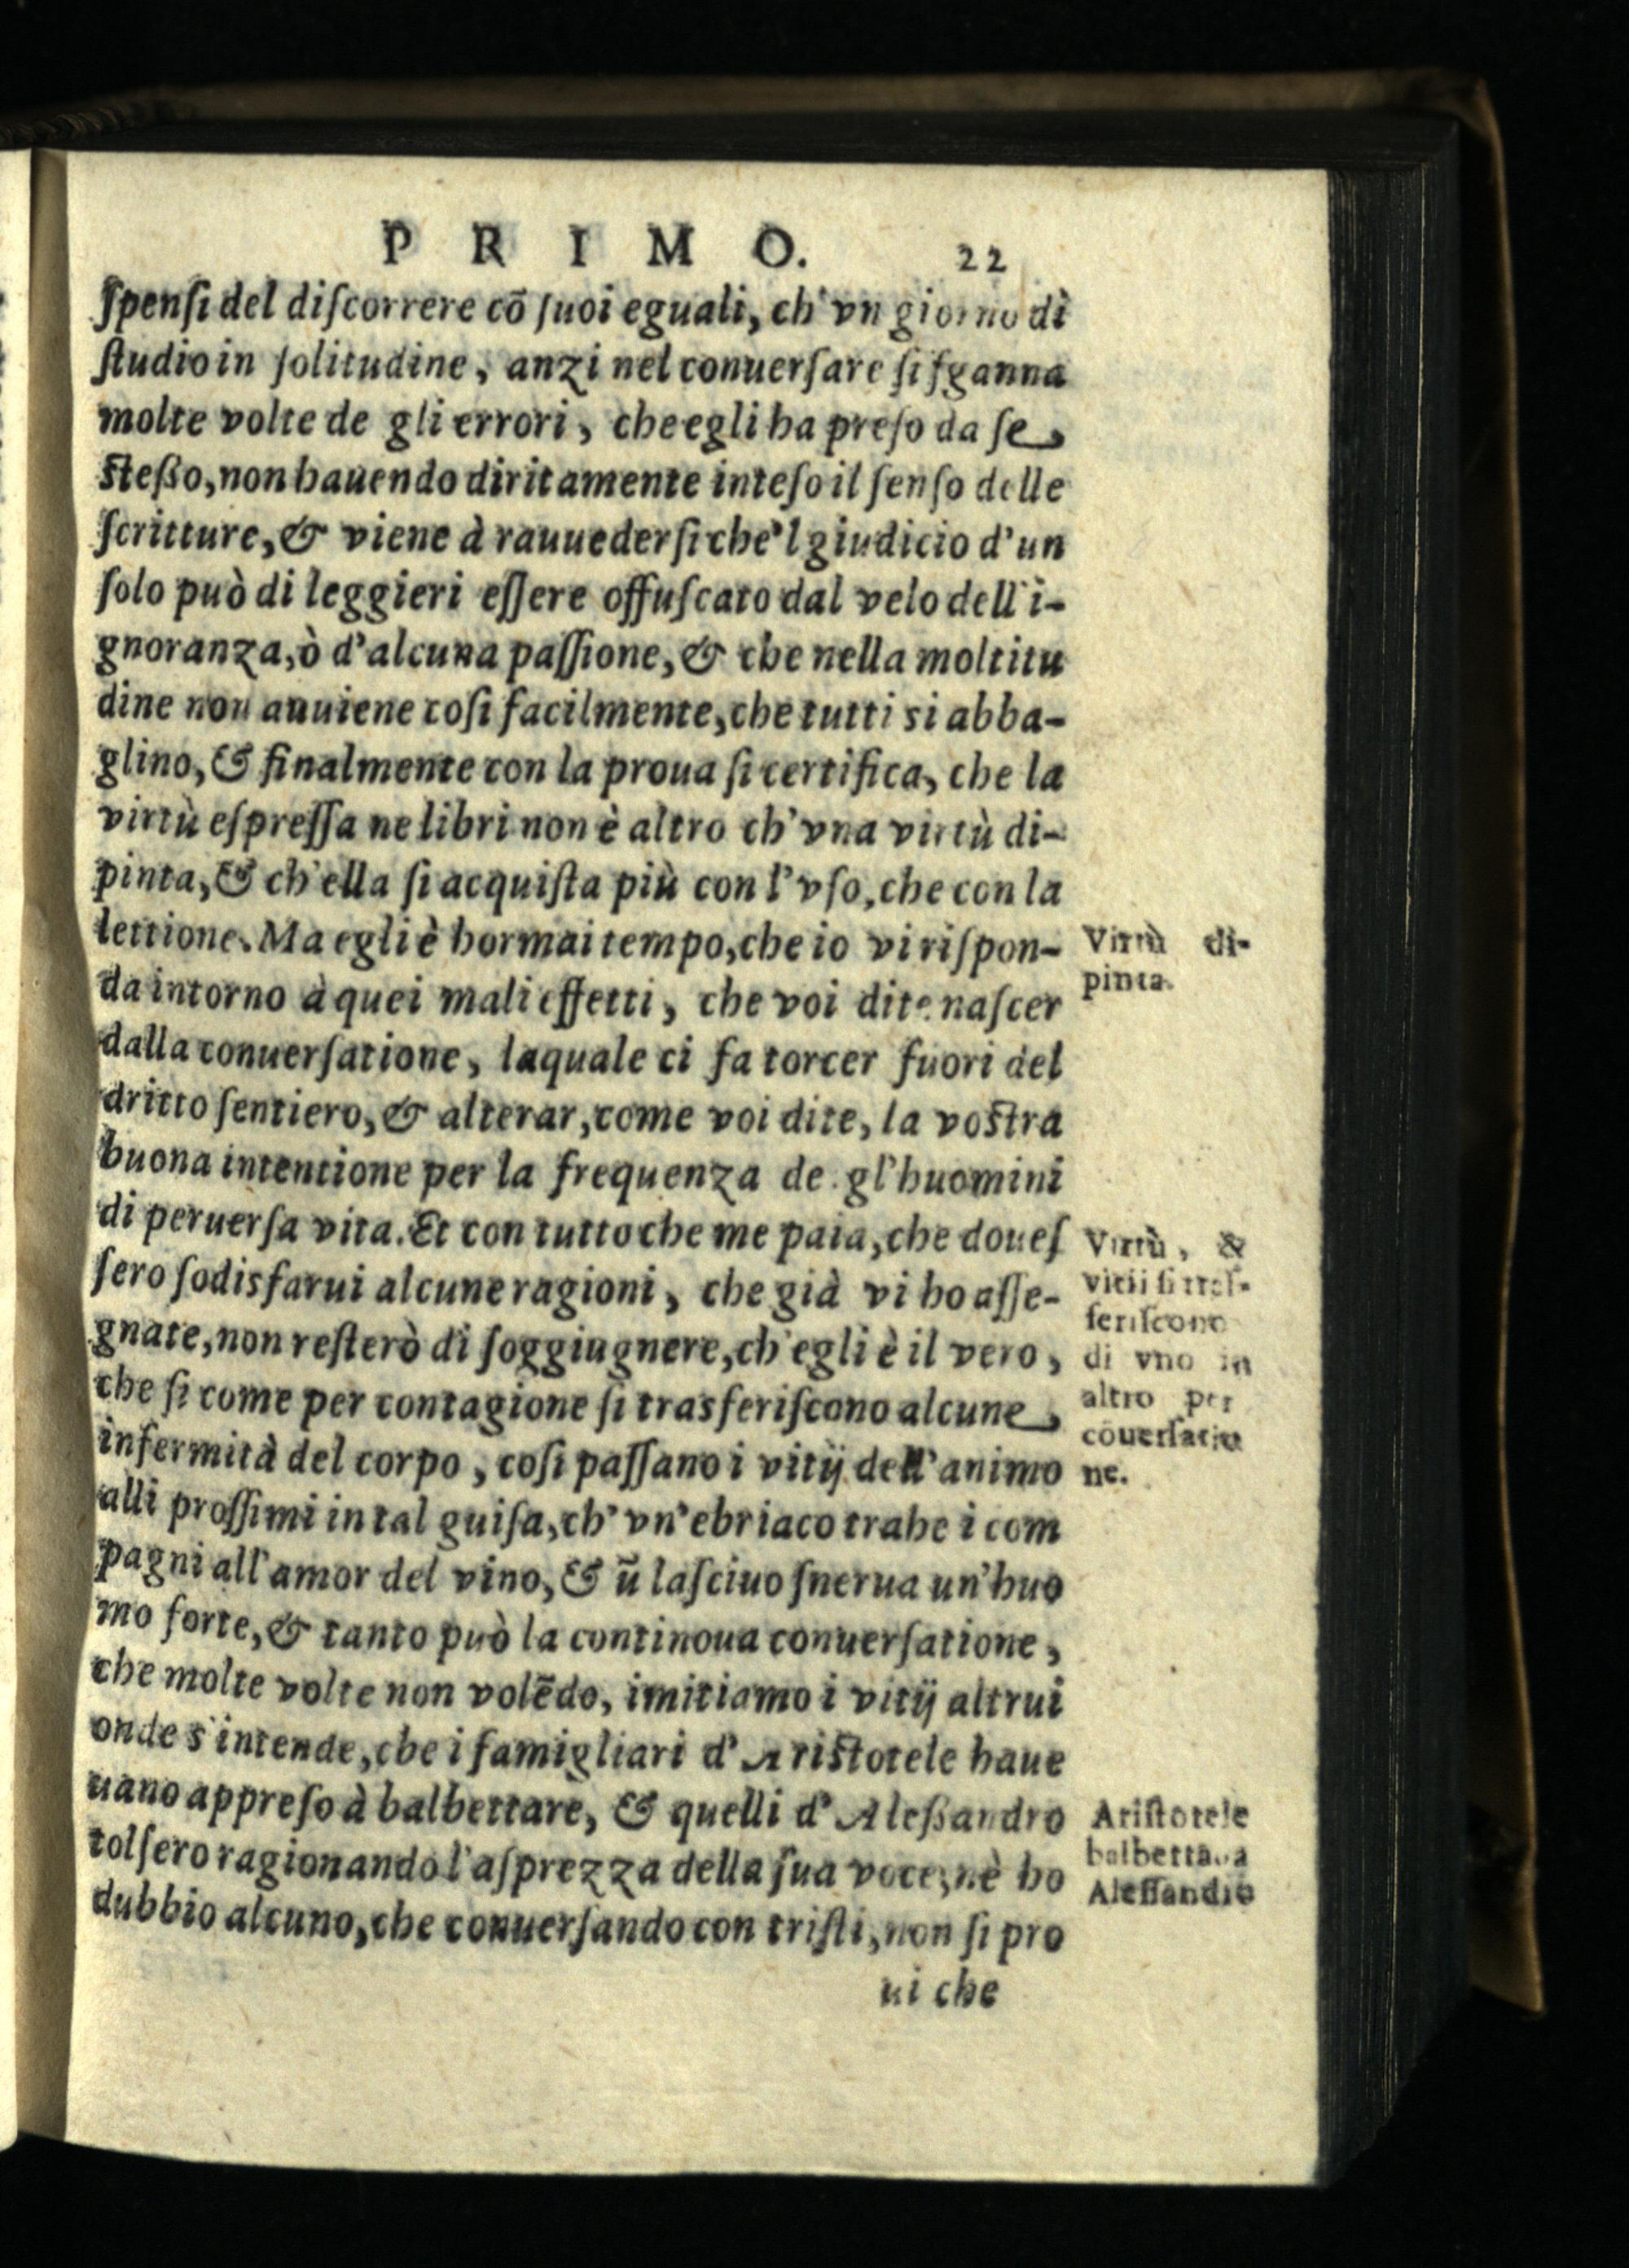 PRIMO. 22
ſpenſi del diſcorrere cō ſuoi eguali, ch'vn giorno di
ſtudio in ſolitudine, anzi nel conuerſare ſi ſganna
molte volte de gli errori, che egli ha preſo da ſe
steßo, non hauendo diritamente inteſo il ſenſo delle
ſcritture, & viene à rauuederſi che'l giudicio d'un
ſolo può di leggieri eſſere offuſcato dal velo dell'i-
gnoranza, ò d'alcuna paſſione, & che nella moltitu
dine non auuiene coſi facilmente, che tutti si abba-
glino, & finalmente con la proua ſi certifica, che la
virtù eſpreſſa ne libri non è altro ch'vna virtù di-
pinta, & ch'ella ſi acquiſta più con l'vſo, che con la
lettione. Ma egli è hormai tempo, che io vi riſpon-
da intorno à quei mali effetti, che voi dite naſcer
dalla conuerſatione, laquale ci fa torcer fuori del
dritto ſentiero, & alterar, come voi dite, la vostra
buona intentione per la frequenza de gl'huomini
di peruerſa vita. Et con tutto che me paia, che doueſ
ſero ſodisfarui alcune ragioni, che già vi ho aſſe-
gnate, non reſterò di ſoggiugnere, ch'egli è il vero,
che ſi come per contagione ſi trasferiſcono alcune
infermità del corpo, coſi paſſano i vitij dell'animo
alli proſſimi in tal guiſa, ch'vn'ebriaco trahe i com
pagni all'amor del vino, & ū laſciuo ſnerua un'huo
mo forte, & tanto può la continoua conuerſatione,
che molte volte non volēdo, imitiamo i vitij altrui
onde s'intende, che i famigliari d'Aristotele haue
uano appreſo à balbettare, & quelli d'Aleßandro
tolſero ragionando l'aſprezza della ſua voce, nè ho
dubbio alcuno, che conuerſando con triſti, non ſi pro
ui che
Virtù di-
pinta.
Virtù, &
vitii ſi traſ-
feriſcono
di vno in
altro per
cōuerſatio
ne.
Ariſtotele
balbettaua
Aleſſandro